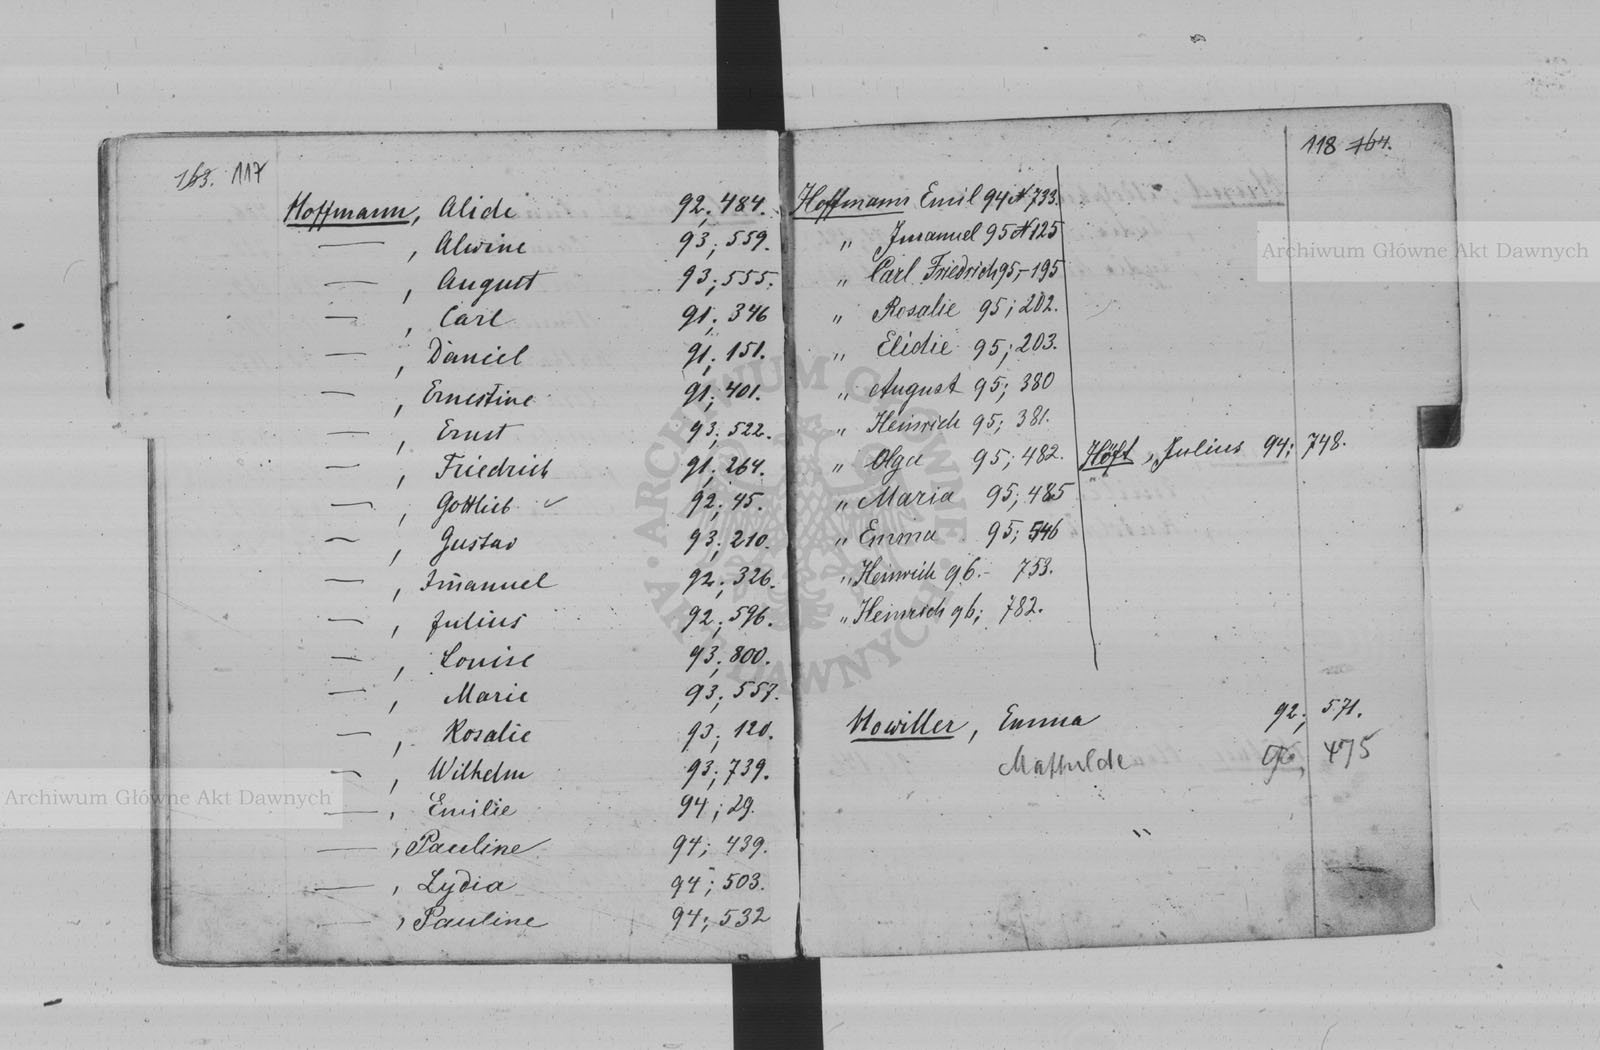 163. 117
Hoffmann, Alide 92; 484.
— , Alwine 93; 559.
— , August 93; 555.
— , Carl 91; 346
— , Daniel 91; 151.
— , Ernestine 91; 401.
— , Ernst 93; 522.
— , Friedrich 91; 264.
— , Gottlieb ✓ 92; 45.
— , Gustav 93; 210.
— , Imanuel 92; 326.
— , Julius 92; 596.
— , Louise 93; 800.
— , Marie 93; 557.
— , Rosalie 93; 120.
— , Wilhelm 93; 739.
— , Emilie 94; 29.
— , Pauline 94; 439.
— , Lydia 94; 503.
— , Pauline 94; 532
118 164.
Hoffmann Emil 94 N 733.
" Imanuel 95 N 125
" Carl Friedrich 95,- 195
" Rosalie 95; 202.
" Elidie 95; 203.
" August 95; 380
" Heinrich 95; 381.
" Olga 95; 482.
" Maria 95; 485
" Emma 95; 546
" Heinrich 96.- 753.
" Heinrich 96; 782.
Höft, Julius 94; 748.
Howiller, Emma 92; 571.
Mathilde 96, 475
"
Archiwum Główne Akt Dawnych
Archiwum Główne Akt Dawnych
ARCHIWUM GŁÓWNE AKT DAWNYCH